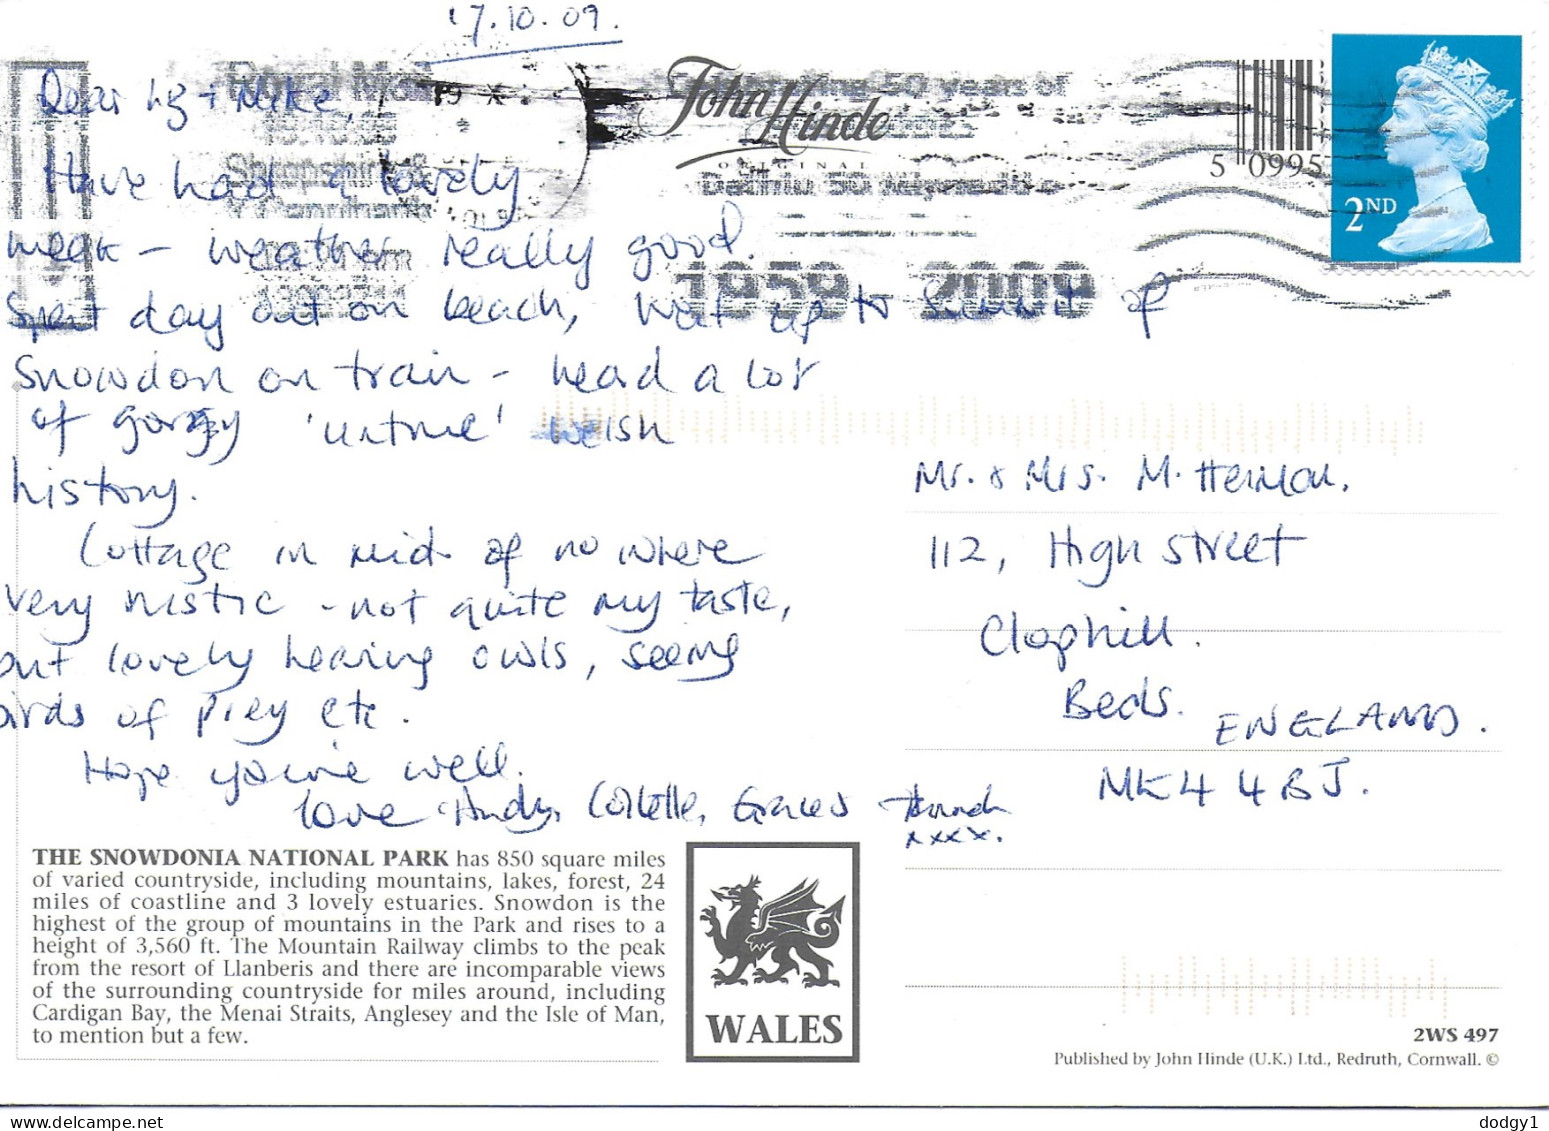 17.10.09.
Dear Liz + Mike,
Have had a lovely
week - weather really good.
Spent day out on beach, went up to summit of
Snowdon on train - head a lot
of gorgy 'untrue' welsh
history.
Cottage in mid of nowhere
very rustic - not quite my taste,
but lovely hearing owls, seeing
birds of prey etc.
Hope you're well.
love Andy, Collette, Grace & Hannah
xxxx.
John Hinde
ORIGINAL
Royal Mail
19
50 years of
1959 2009
5 0995
2ND
Mr. & Mrs. M. Herman.
112, High Street
Clophill.
Beds. ENGLAND.
MK44 4BJ.
THE SNOWDONIA NATIONAL PARK has 850 square miles
of varied countryside, including mountains, lakes, forest, 24
miles of coastline and 3 lovely estuaries. Snowdon is the
highest of the group of mountains in the Park and rises to a
height of 3,560 ft. The Mountain Railway climbs to the peak
from the resort of Llanberis and there are incomparable views
of the surrounding countryside for miles around, including
Cardigan Bay, the Menai Straits, Anglesey and the Isle of Man,
to mention but a few.
WALES
2WS 497
Published by John Hinde (U.K.) Ltd., Redruth, Cornwall. ©
dodgy1